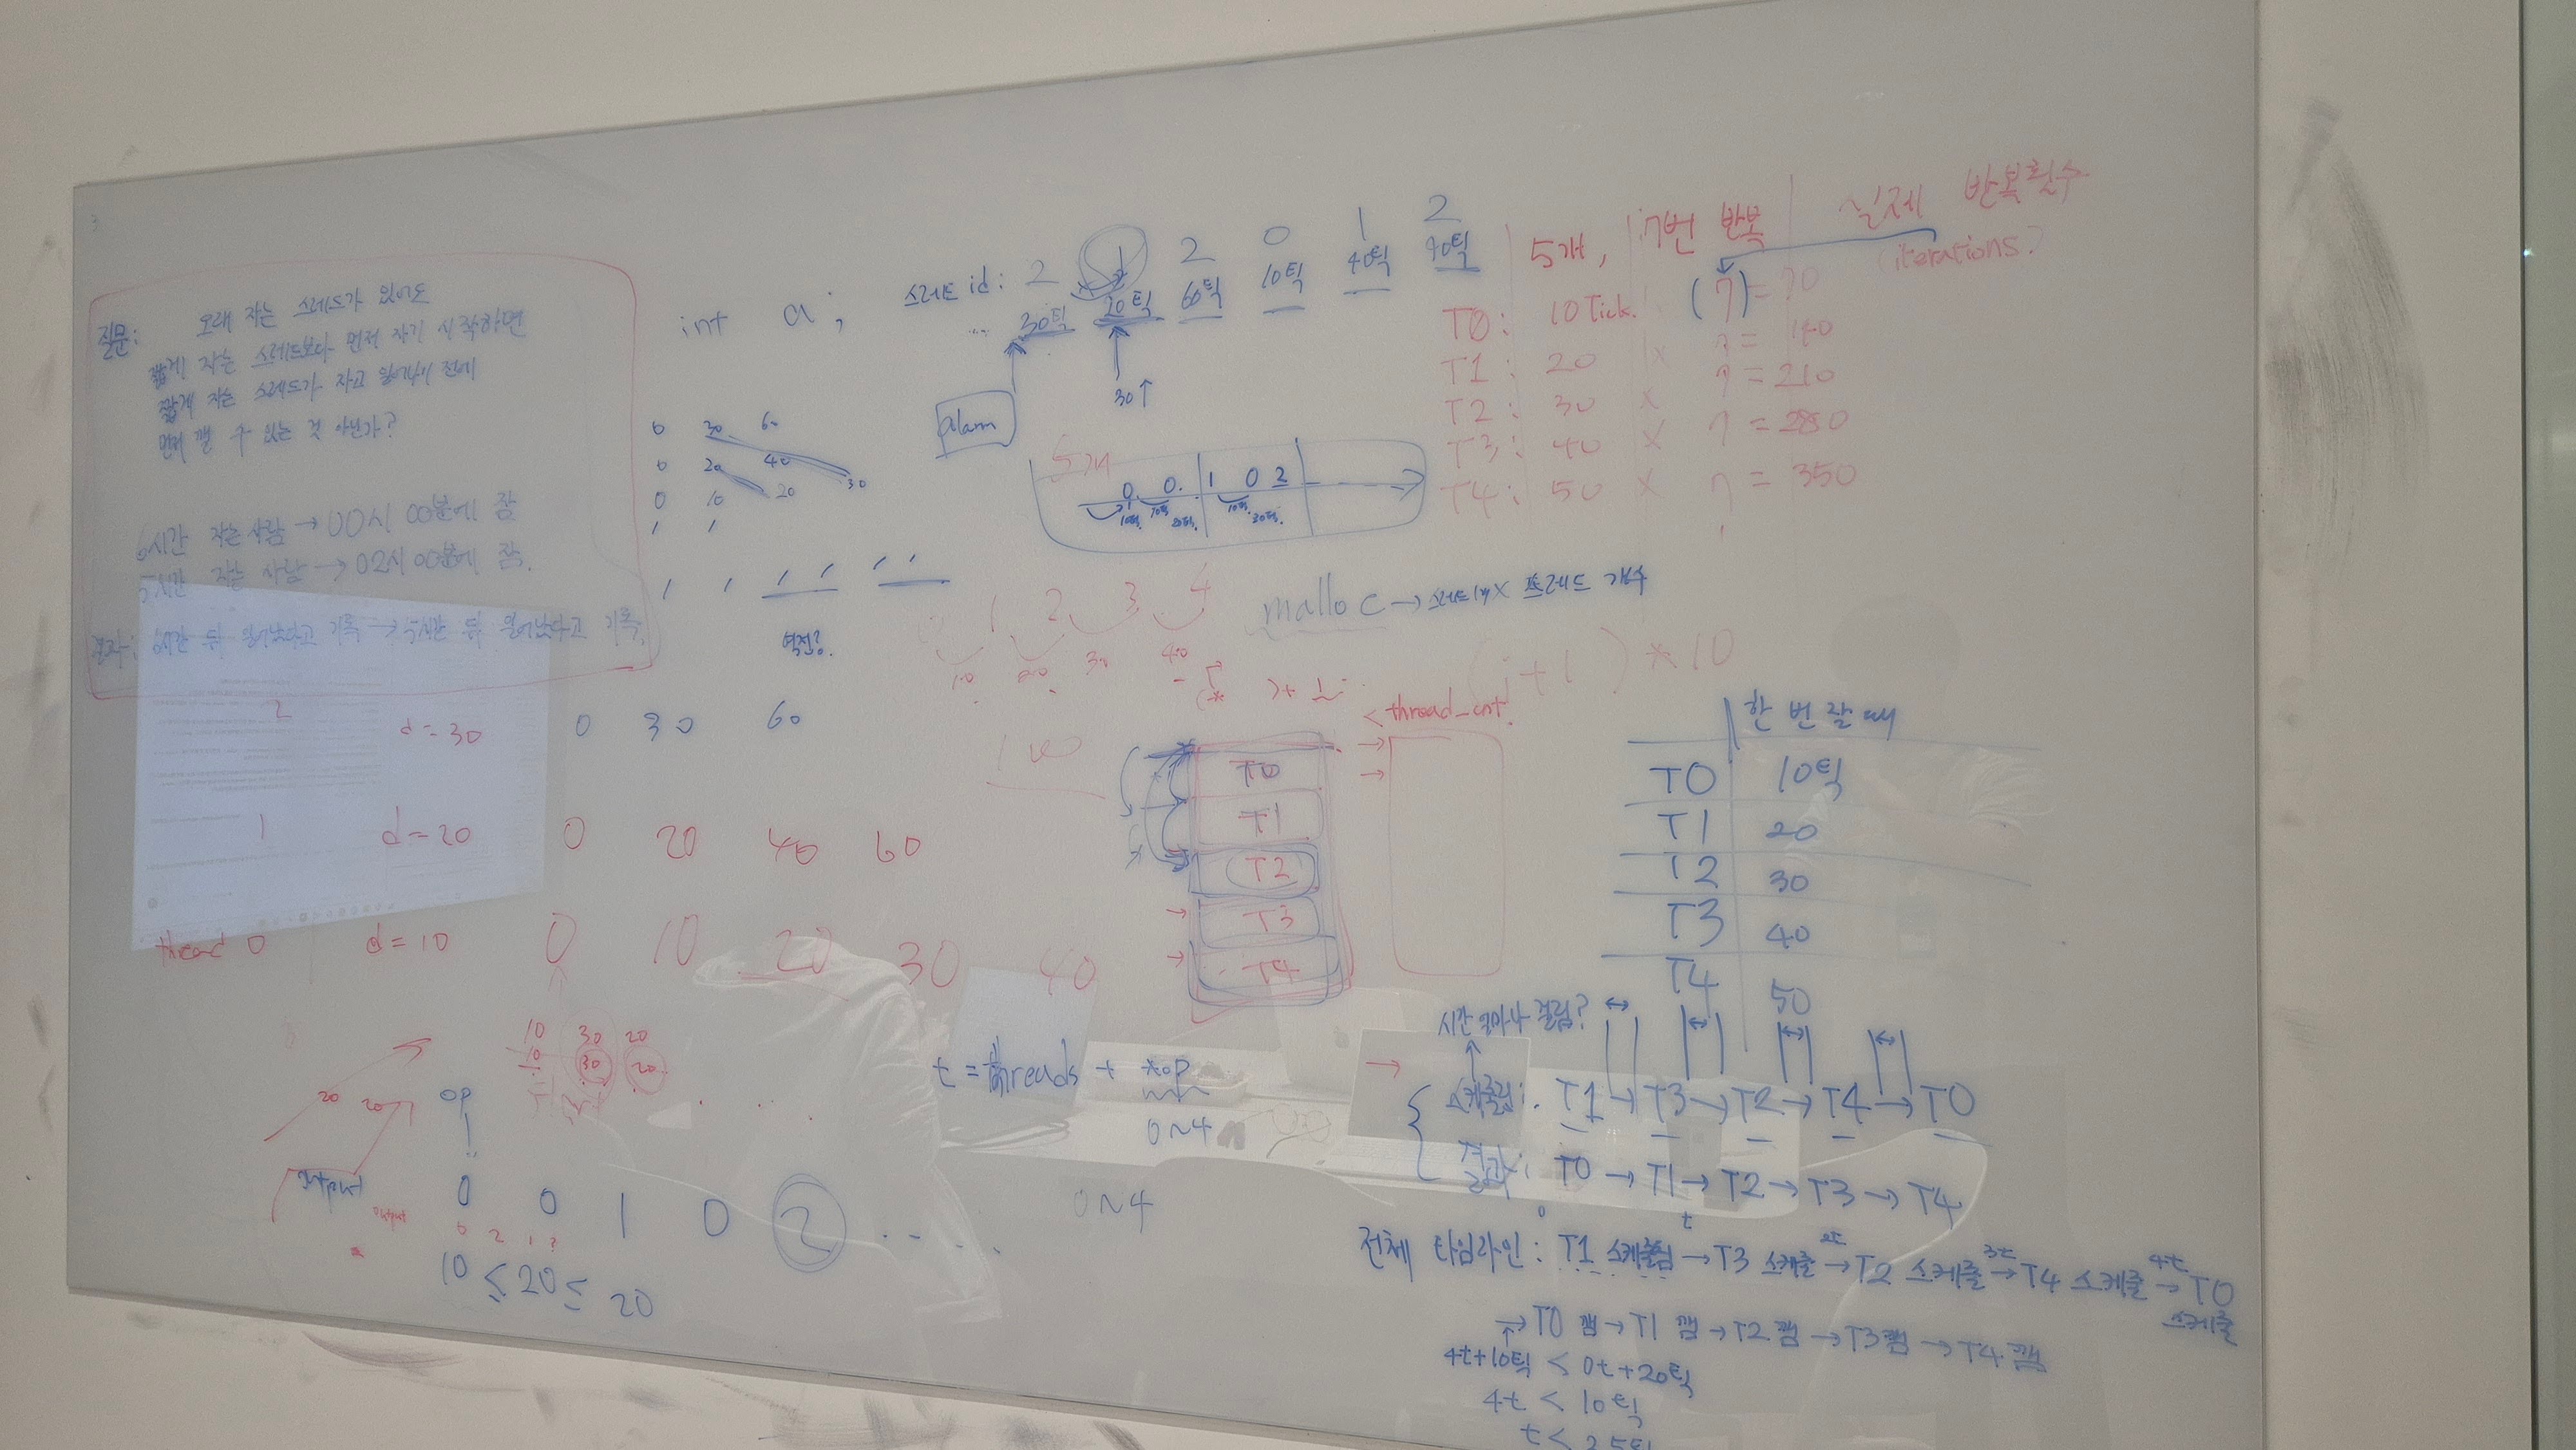 질문: 오래 자는 스레드가 있어도
짧게 자는 스레드보다 먼저 자기 시작하면
짧게 자는 스레드가 자고 일어나기 전에
먼저 깰 수 있는 것 아닌가?
6시간 자는 사람 → 00시 00분에 잠
5시간 자는 사람 → 02시 00분에 잠.
결과: 6시간 뒤 일어났다고 기록 → 5시간 뒤 일어났다고 기록.
int a;
스레드 id: 2 1 2 0 1 2
... 30틱 20틱 60틱 10틱 40틱 90틱
alarm
30↑
0 30 60
0 20 40 30
0 10 20
1 1
역전?
5개
0. 0. 1 0 2
10틱. 10틱. 20틱. 10틱. 30틱.
5개, 7번 반복 실제 반복횟수
(iterations?)
T0: 10 Tick. (7) = 70
T1: 20 × 7 = 140
T2: 30 × 7 = 210
T3: 40 × 7 = 280
T4: 50 × 7 = 350
malloc → 스레드 개수
1 2 3 4
10 20 30 40
(i+1) * 10
< thread_cnt
T0
T1
T2
T3
T4
2 d=30 0 30 60
1 d=20 0 20 40 60
thread 0 d=10 0 10 20 30 40
한 번 잘 때
T0 10틱
T1 20
T2 30
T3 40
T4 50
10 30 20
10 30 20
20 20
op
output
output
0 0 1 0 2 ....
10 ≤ 20 ≤ 20
t = threads + *op
0~4
0~4
시간 얼마나 걸림?
스케줄링: T1 → T3 → T2 → T4 → T0
결과: T0 → T1 → T2 → T3 → T4
0 t 2t 3t 4t
전체 타임라인: T1 스케줄링 → T3 스케줄 → T2 스케줄 → T4 스케줄 → T0 스케줄
→ T0 깸 → T1 깸 → T2 깸 → T3 깸 → T4 깸
4t+10틱 < 0t+20틱
4t < 10틱
t < 2.5틱